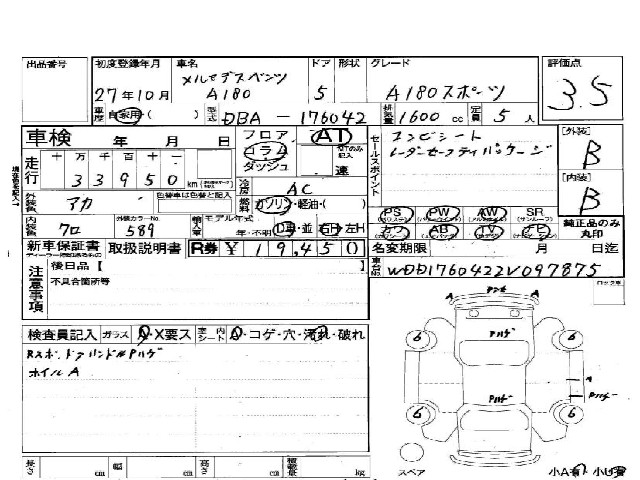 出品番号 初度登録年月 車名 ドア 形状 グレード 評価点
27年10月 メルセデスベンツ A180 5 A180スポーツ 3.5
車歴 自家用・( ) 型式 DBA-176042 排気量 1600 cc 定員 5 人
車検 年 月 日 フロア AT
コラム MTのみ記入
ダッシュ 速
走行 十 万 千 百 十 一
33950 km
冷房 AC
外装色 アカ 色替車は色替と記入 燃料 ガソリン・軽油・( )
内装色 クロ 外装カラーNo. 589 輸入車 モデル年式 年・不明 D車・並 右H・左H
セールスポイント コンビシート
レーダーセーフティパッケージ
[外装] B
[内装] B
PS PW AW SR
カワ AB TV ナビ
純正品のみ丸印
新車保証書 取扱説明書 R券 ¥19,450
名変期限 月 日迄
車台No. WDD1760422V097875
注意事項 後日品【
不具合箇所等
検査員記入 ガラス A・X要ス 室内シート A・コゲ・穴・汚れ・破れ
Rスポ、ドアハンドルPハゲ
ホイルA
長さ cm 幅 cm 高さ cm 積載量 kg
Pハゲ
6 6
A
Pハゲ Pハゲ
6 6
スペア 小A有・小U有